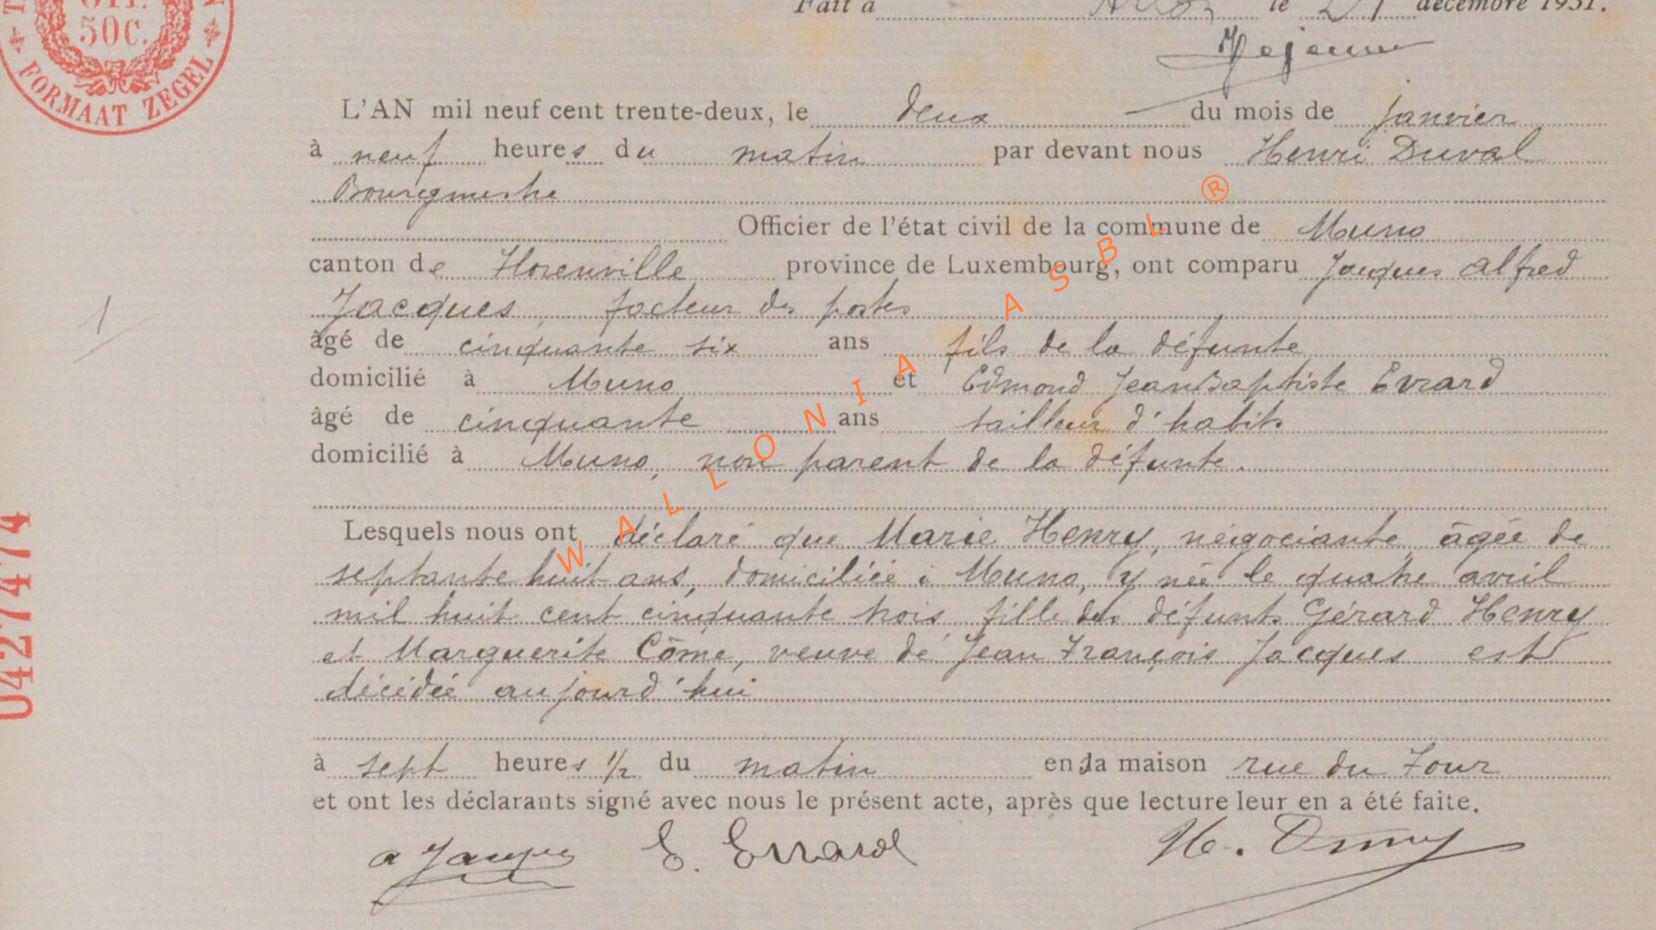 OFF.
50C.
FORMAAT ZEGEL
Fait à Arlon le 21 décembre 1931.
L'AN mil neuf cent trente-deux, le deux du mois de janvier
à neuf heures du matin par devant nous Henri Duval
Bourgmestre
Officier de l'état civil de la commune de Muno
canton de Florenville province de Luxembourg, ont comparu Jacques Alfred
Jacques, facteur des postes
âgé de cinquante six ans fils de la défunte
domicilié à Muno et Edmond Jean Baptiste Evrard
âgé de cinquante ans tailleur d'habits
domicilié à Muno, non parent de la défunte.
1
Lesquels nous ont déclaré que Marie Henry, négociante, âgée de
septante huit ans, domiciliée à Muno, y née le quatre avril
mil huit cent cinquante trois fille des défunts Gérard Henry
et Marguerite Côme, veuve de Jean François Jacques est
décédée aujourd'hui
à sept heures 1/2 du matin en la maison rue du Four
et ont les déclarants signé avec nous le présent acte, après que lecture leur en a été faite.
a Jacques E. Evrard
0427474
WALLONIA ASBL ®